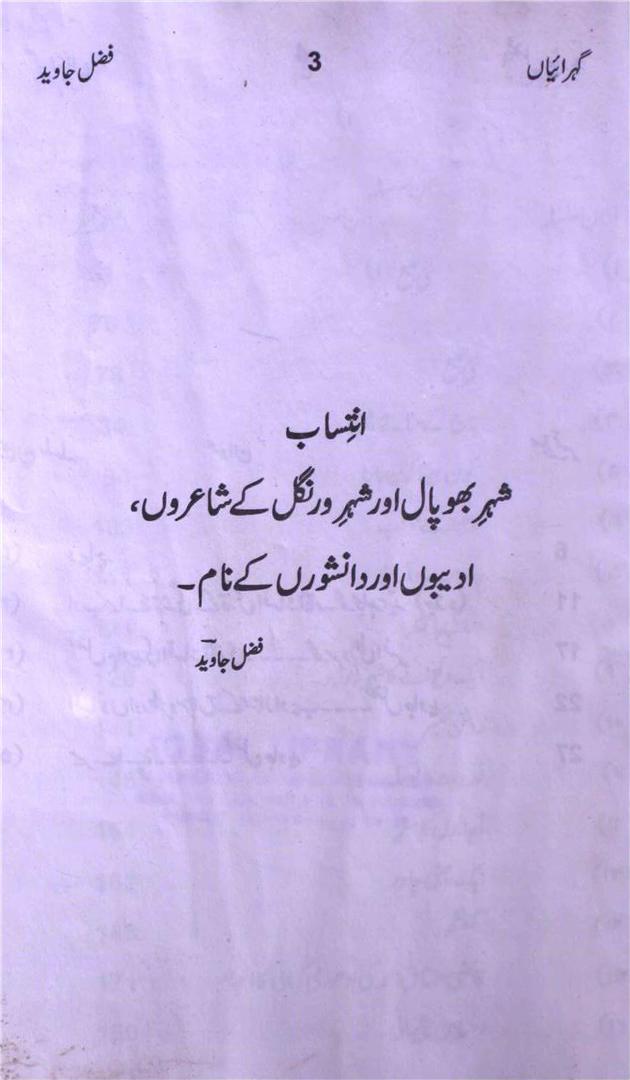 گہرائیاں 3 فضل جاوید
انتِساب
شہرِ بھوپال اور شہرِ ورنگل کے شاعروں،
ادیبوں اور دانشورں کے نام۔
فضل جاوید